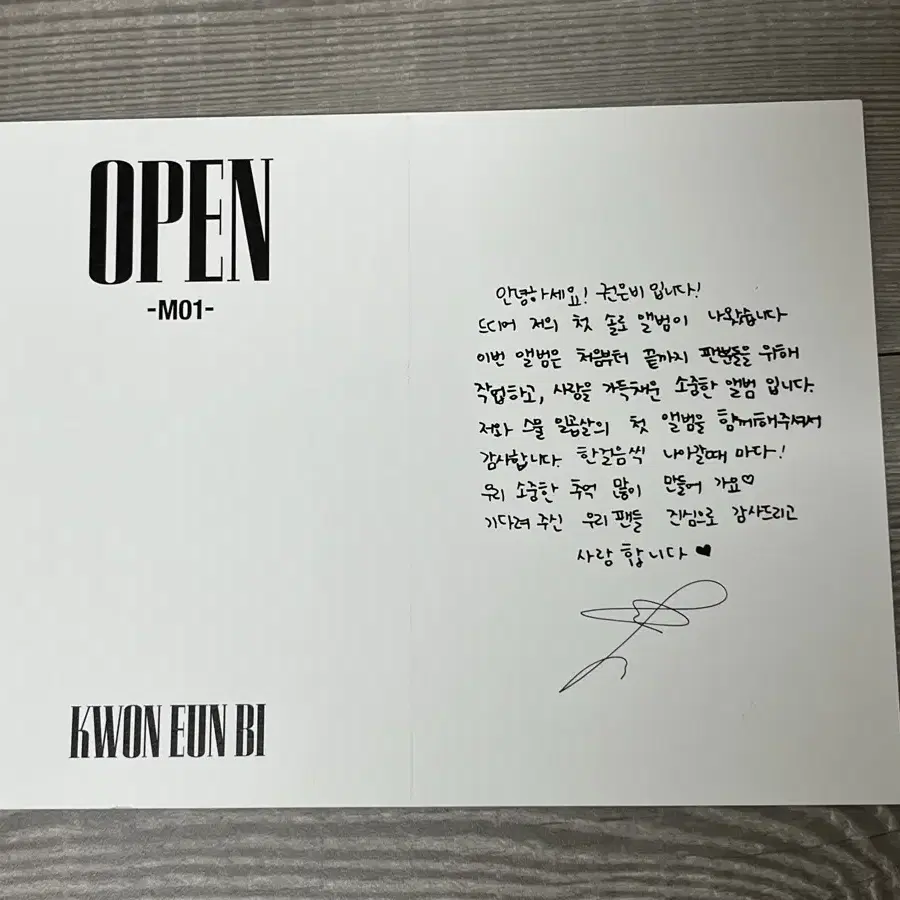 OPEN
-M01-
KWON EUN BI
안녕하세요! 권은비입니다!
드디어 저의 첫 솔로 앨범이 나왔습니다
이번 앨범은 처음부터 끝까지 팬분들을 위해
작업하고, 사랑을 가득채운 소중한 앨범 입니다.
저와 스물 일곱살의 첫 앨범을 함께해주셔서
감사합니다. 한걸음씩 나아갈때 마다!
우리 소중한 추억 많이 만들어 가요♡
기다려 주신 우리 팬들 진심으로 감사드리고
사랑 합니다 ♥